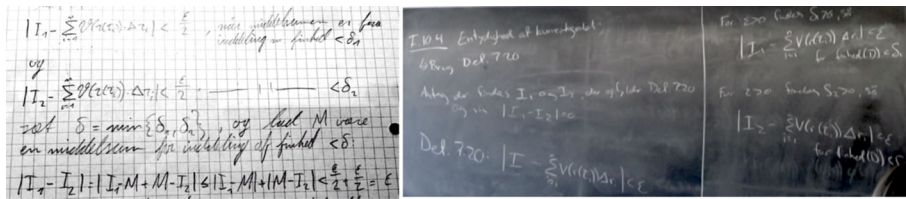 |I₁ - Σⁿᵢ₌₁ V(r(τᵢ))·Δrᵢ| < ε/2 , når middelsummen er for
inddeling m finhed < δ₁
og
|I₂ - Σⁿᵢ₌₁ V(r(τᵢ))·Δrᵢ| < ε/2 — 11 — < δ₂
sæt δ = min{δ₁, δ₂}, og lad M være
en middelsum for inddeling af finhed < δ:
|I₁ - I₂| = |I₁ - M + M - I₂| ≤ |I₁ - M| + |M - I₂| < ε/2 + ε/2 = ε
I 10.4 Entydighed af kurveintegralet.
↳ Brug Def. 7.20
Antag der findes I₁ og I₂, der opfylder Def 7.20
og vis |I₁ - I₂| = 0
Def. 7.20: |I - Σⁿᵢ₌₁ V(r(τᵢ)) Δrᵢ| < ε
For ε>0 findes δ₁>0, så
|I₁ - Σⁿᵢ₌₁ V(r(τᵢ)) Δrᵢ| < ε
for finhed(D) < δ₁
For ε>0 findes δ₂>0, så
|I₂ - Σⁿᵢ₌₁ V(r(τᵢ)) Δrᵢ| < ε
for finhed(D) < δ